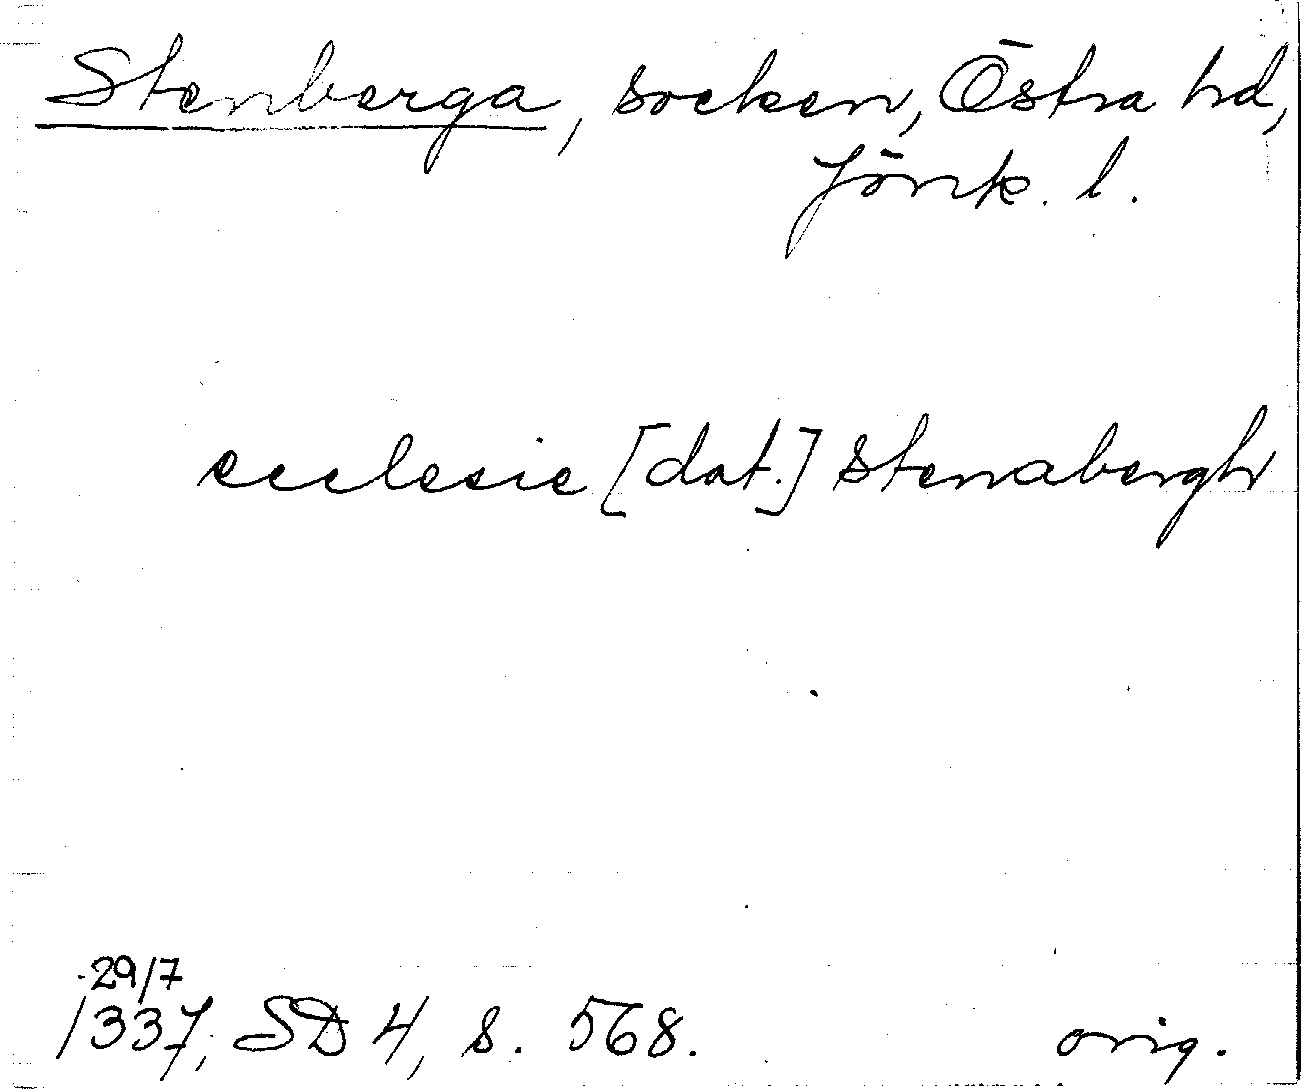 Stenberga, socken, Östra hd,
Jönk. l.
ecclesie [dat.] Stenabergh
29/7
1337, SD 4, s. 568. orig.